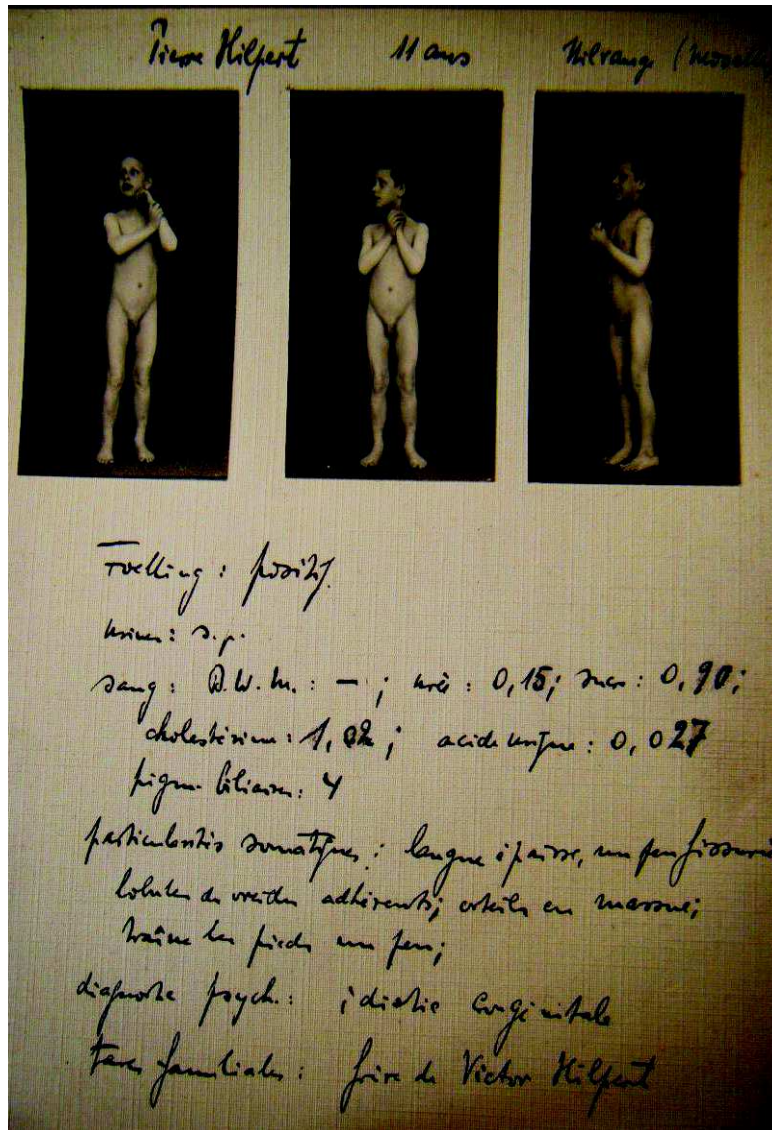 Pierre Hilpert 11 ans Nilvange (Moselle
Foelling : positif.
urines : s.p.
sang : B.W. M. : — ; urée : 0,15; sucre : 0,90;
cholestérine : 1,02 ; acide urique : 0,027
pigm. biliaires : 4
particularités somatiques : langue épaisse, un peu fissurée
lobules des oreilles adhérents; orteils en massue;
traîne les pieds un peu;
diagnostic psych. : idiotie congénitale
tares familiales : frère de Victor Hilpert